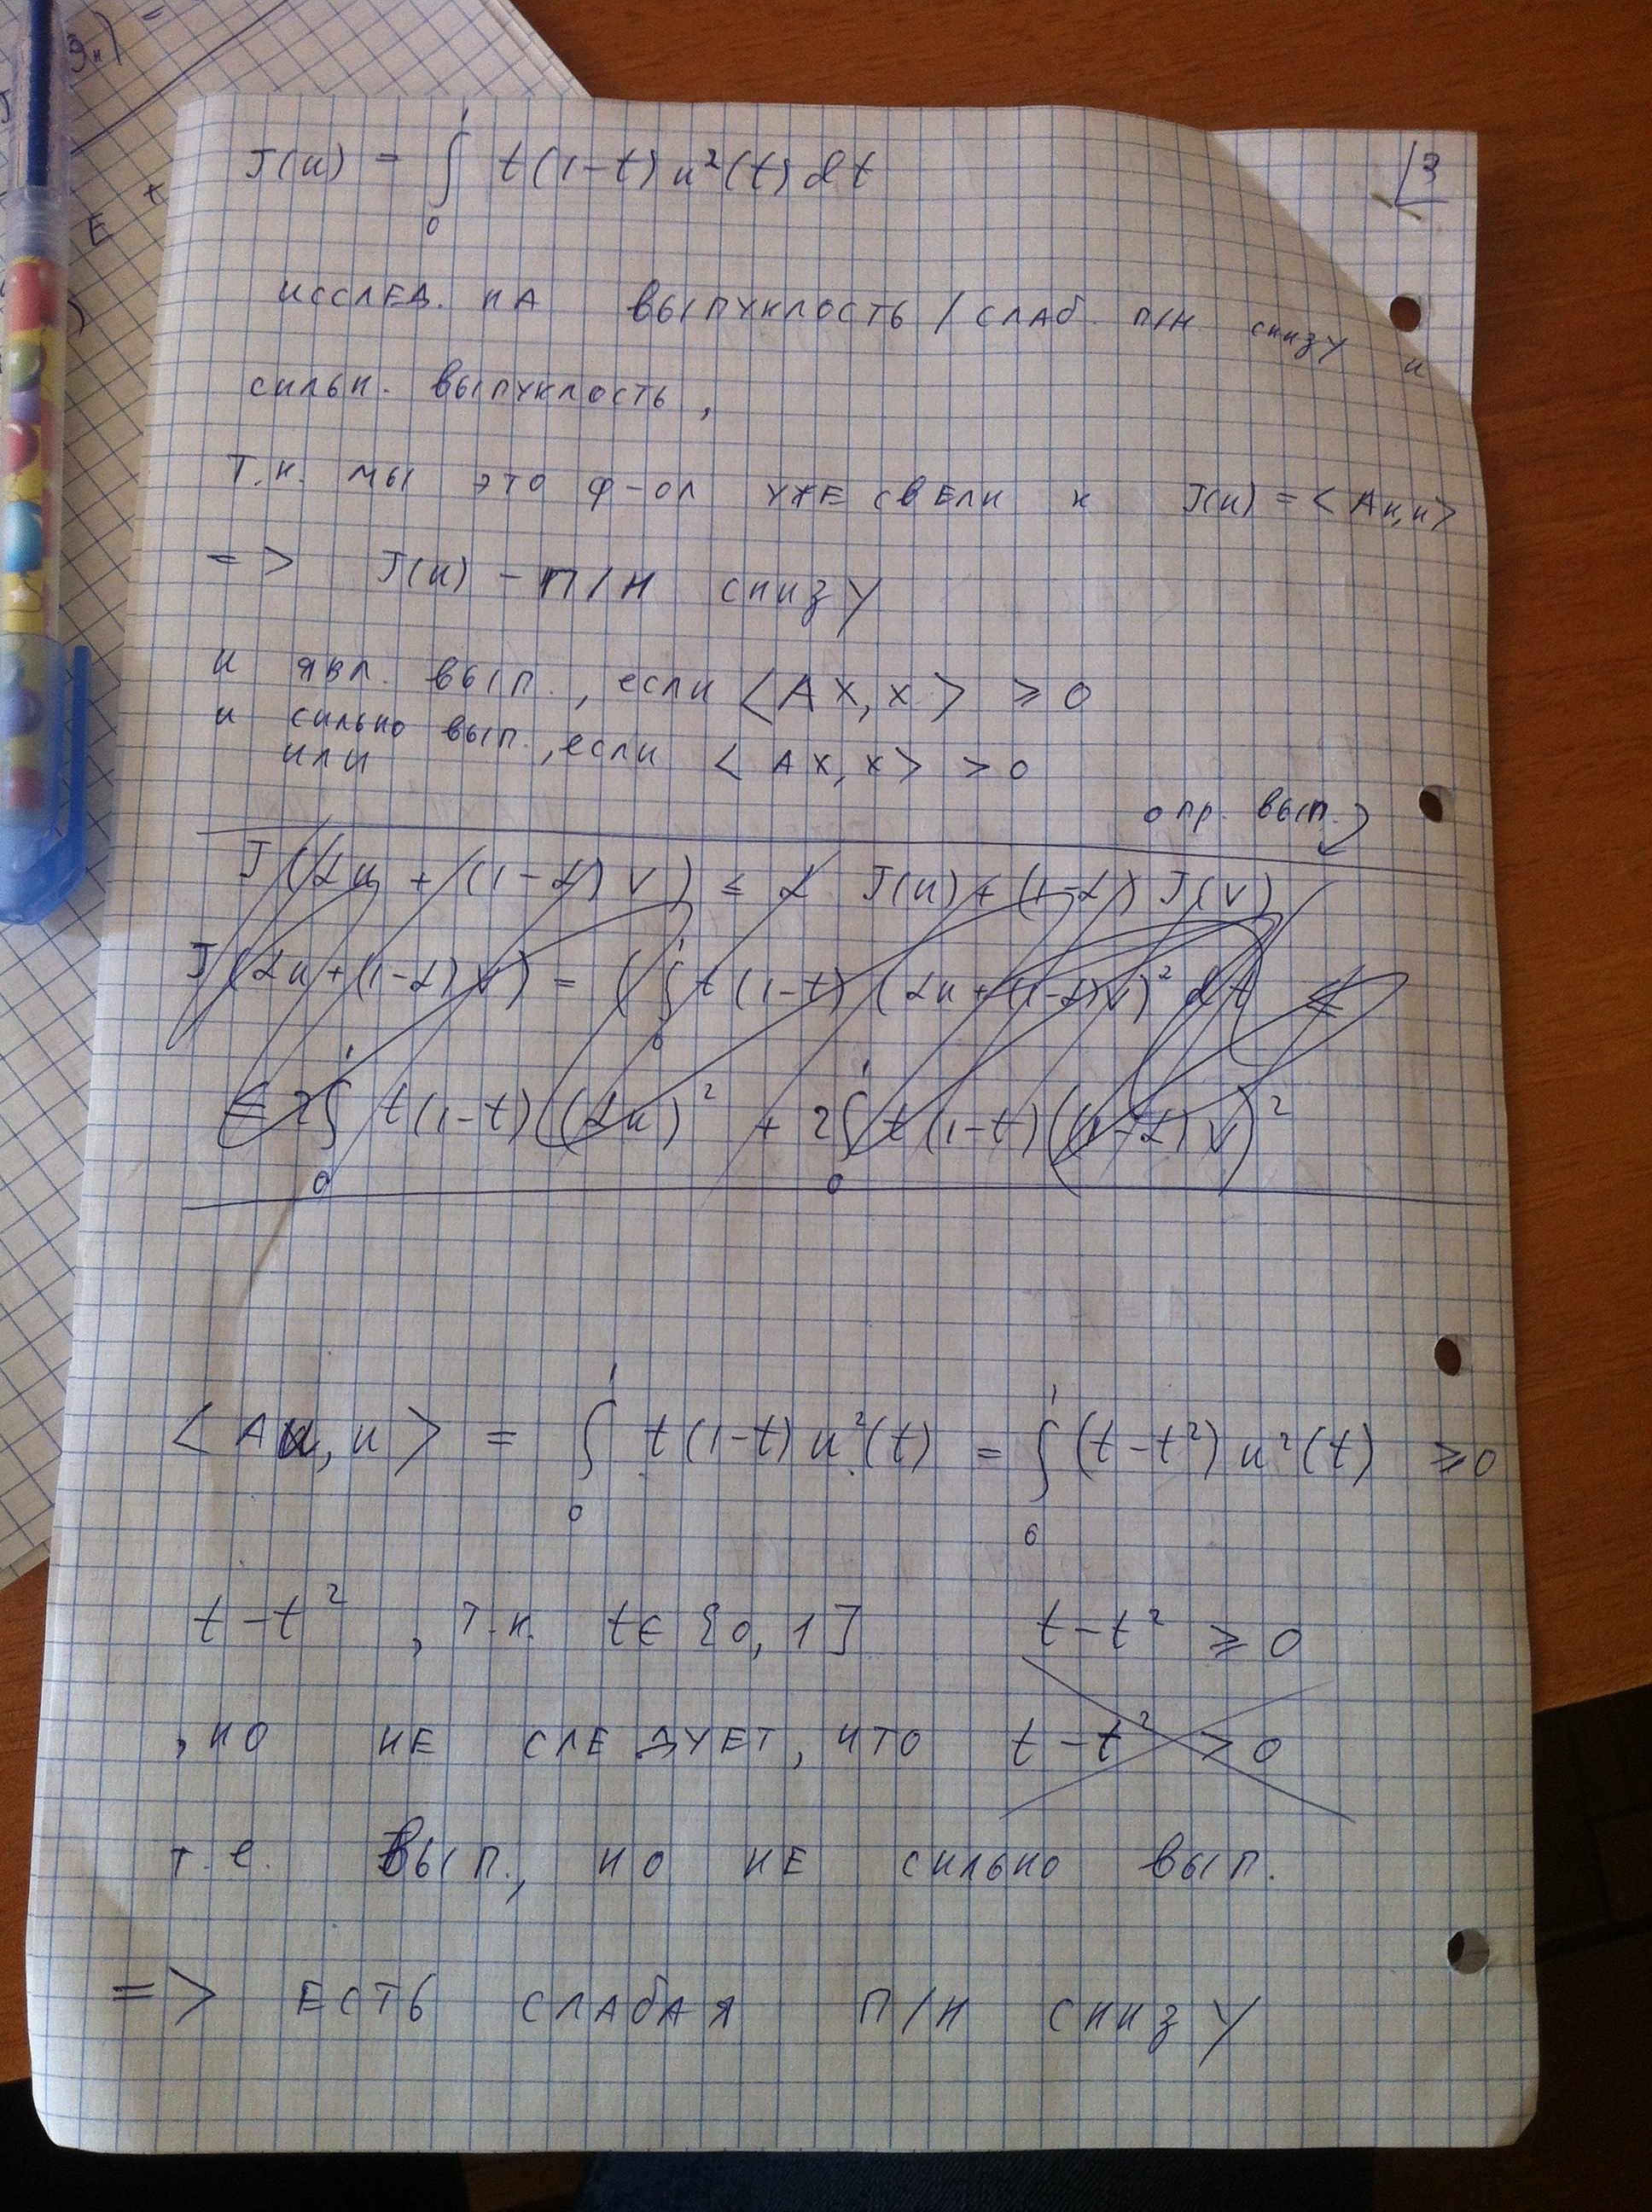 J(u) = ∫₀¹ t(1-t) u²(t) dt
3
исслед. на выпуклость / слаб. п/н снизу и
сильн. выпуклость,
т.к. мы это ф-ол уже свели к J(u) = <Au,u>
=> J(u) - п/н снизу
и явл. вып., если <Ax, x> ≥ 0
и сильно вып., если <Ax, x> > 0
или
опр. вып.
J(αu + (1-α)v) ≤ α J(u) + (1-α) J(v)
J(αu + (1-α)v) = (∫₀¹ t(1-t) (αu + (1-α)v)² dt ≤
≤ 2∫₀¹ t(1-t)(αu)² + 2∫₀¹ t(1-t)((1-α)v)²
<Au, u> = ∫₀¹ t(1-t) u²(t) = ∫₀¹ (t-t²) u²(t) ≥ 0
t-t² , т.к. t∈{0,1] t-t² ≥ 0
, но не следует, что t-t² > 0
т.е. вып., но не сильно вып.
=> есть слабая п/н снизу